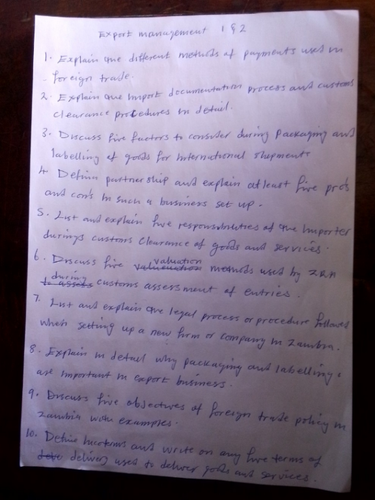 Export management 1 & 2
1. Explain the different methods of payments used in
foreign trade.
2. Explain the import documentation process and customs
clearance procedures in detail.
3. Discuss five factors to consider during packaging and
labelling of goods for international shipments
4. Define partnership and explain atleast five pros
and cons in such a business set up.
5. List and explain five responsibilities of the importer
during customs clearance of goods and services.
6. Discuss five valuation methods used by ZRA
during customs assessment of entries.
7. List and explain the legal process or procedure followed
when setting up a new firm or company in Zambia.
8. Explain in detail why packaging and labelling
are important in export business.
9. Discuss five objectives of foreign trade policy in
Zambia with examples.
10. Define Incoterms and write on any five terms of
delivery used to deliver goods and services.